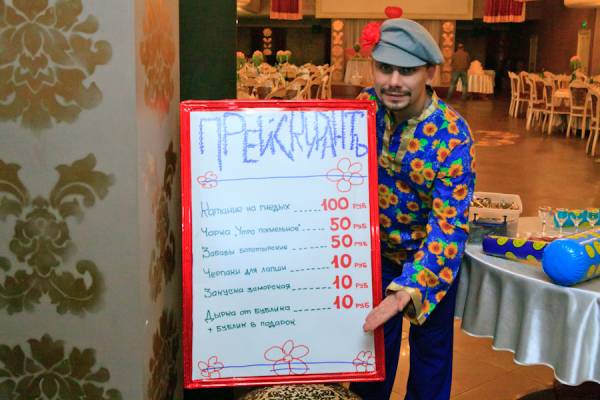 ПРЕЙСКУРАНТЪ
Катание на гнедых ----- 100 РУБ
Чарка „Утро похмельное" --- 50 РУБ
Забавы богатырские ------ 50 РУБ
Черпаки для лапши -------- 10 РУБ
Закуска заморская -------- 10 РУБ
Дырка от бублика ------- 10 РУБ
+ бублик в подарок